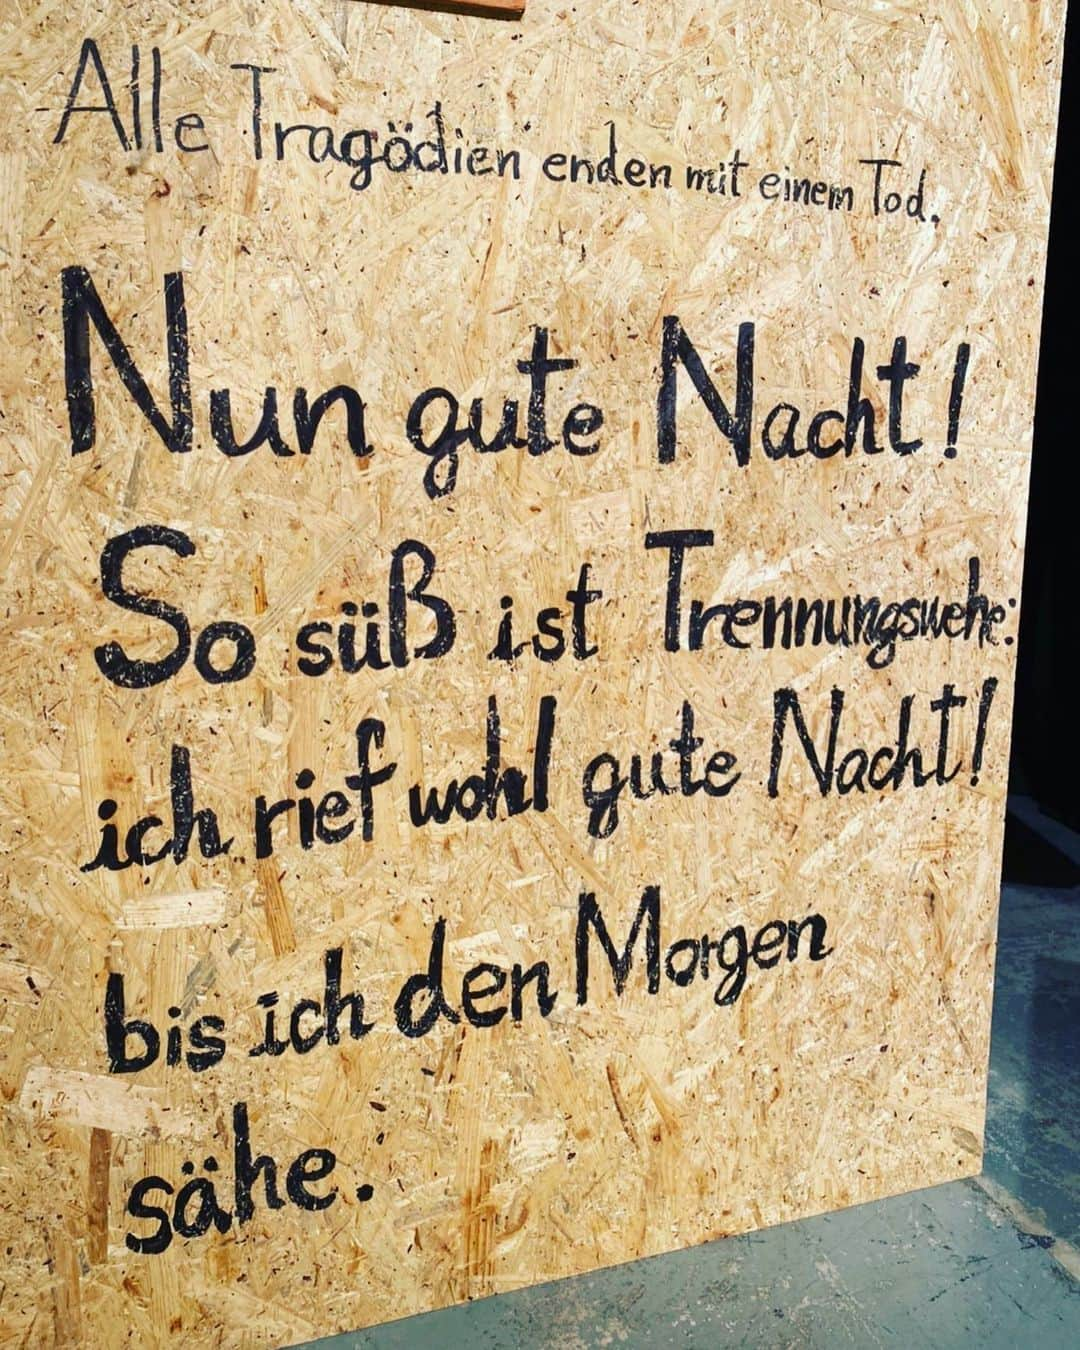 Alle Tragödien enden mit einem Tod.
Nun gute Nacht!
So süß ist Trennungswehe:
ich rief wohl gute Nacht!
bis ich den Morgen
sähe.